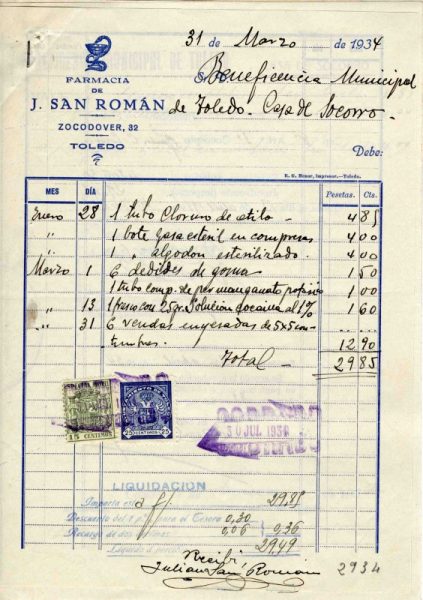 31 de Marzo de 1934
FARMACIA
DE
J. SAN ROMÁN
ZOCODOVER, 32
TOLEDO
Beneficencia Municipal
de Toledo. Casa de Socorro.
Debe:
MES DÍA Pesetas. Cts.
Enero 28 1 tubo Cloruro de etilo 4 85
" 1 bote gasa esteril en compresas 4 00
" 1 " algodon esterilizado. 4 00
Marzo 1 6 dediles de goma 1 50
1 tubo comp. de permanganato potásico 1 00
" 13 1 frasco con 25 gr. Solución cocaina al 1% 1 60
" 31 6 vendas enyesadas de 5x5 cen-
timetros. 12 90
Total 29 85
15 CENTIMOS
25
CORREOS
30 JUL 1934
LIQUIDACIÓN
Importa esta 29,85
Descuento del 1 p. para el Tesoro 0,30
Recargo de dos 0,06 0,36
Líquido 29,49
Recibí
Julian San Román
2934